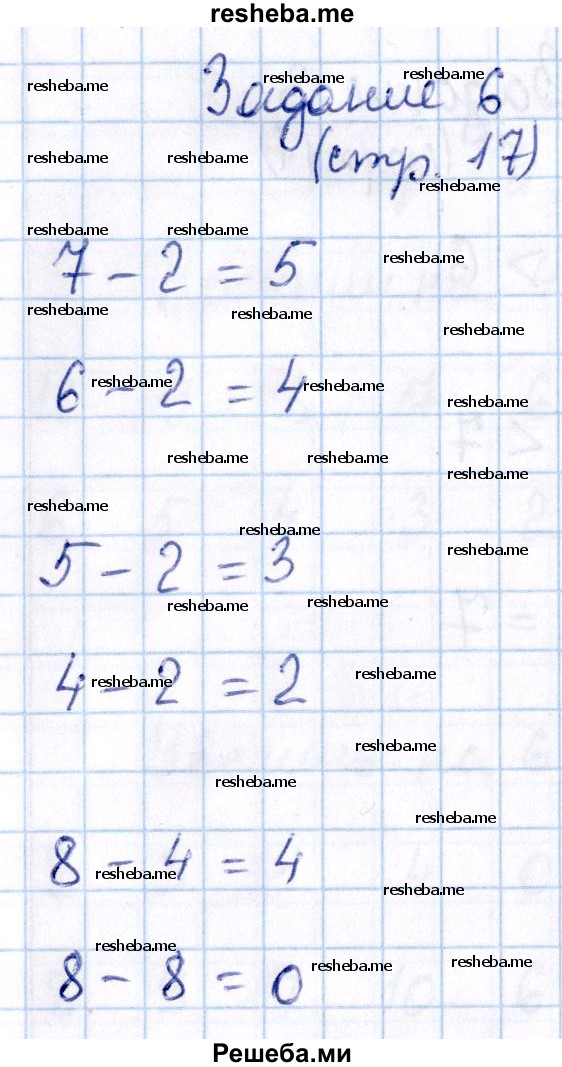 resheba.me
Задание 6
(стр. 17)
7 - 2 = 5
6 - 2 = 4
5 - 2 = 3
4 - 2 = 2
8 - 4 = 4
8 - 8 = 0
Решеба.ми